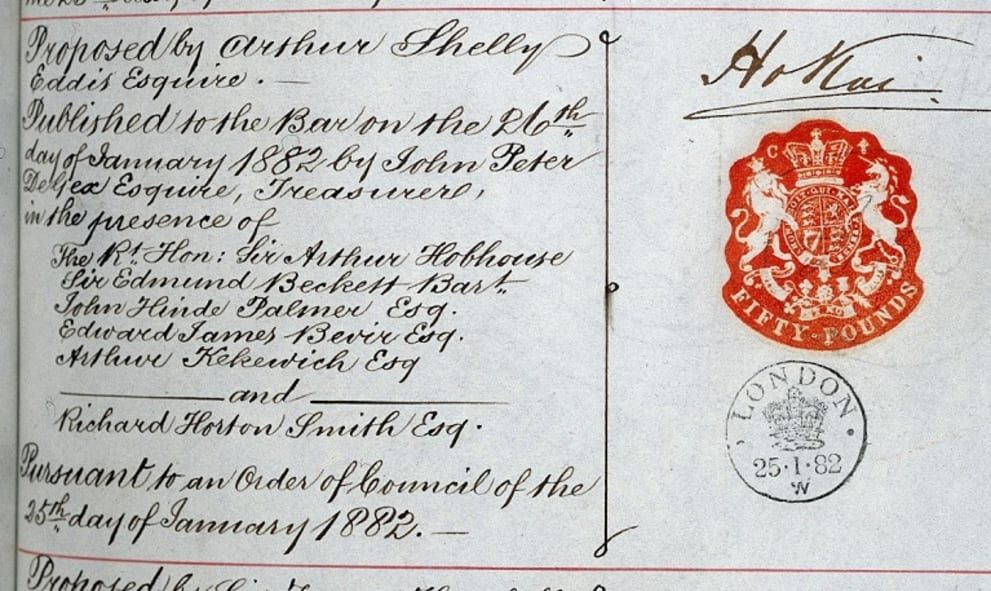 Proposed by Arthur Shelly
Eddis Esquire. —
Published to the Bar on the 26th
day of January 1882 by John Peter
DeGex Esquire, Treasurer,
in the presence of
The Rt. Hon: Sir Arthur Hobhouse
Sir Edmund Beckett Bart.
John Hinde Palmer Esq.
Edward James Bevir Esq.
Arthur Kekewich Esq
and
Richard Horton Smith Esq.
Pursuant to an Order of Council of the
25th day of January 1882. —
Proposed by Sir
Ho Kai
C
FIFTY·POUNDS
LONDON
25·1·82
W